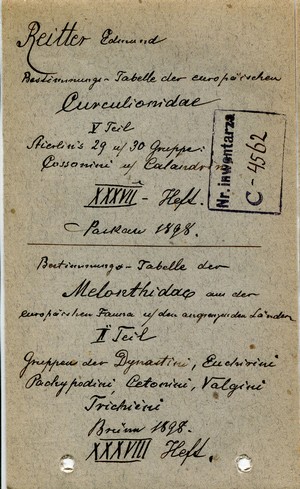 Reitter Edmund
Bestimmungs-Tabelle der europäischen
Curculionidae
V Teil
Stierlin's 29 u/30 Gruppe:
Cossonini u/ Calandrini
XXXVII - Heft.
Paskau 1898.
Nr. inwentarza
C-4562
Bestimmungs-Tabelle der
Melonthidae aus der
europäischen Fauna u/ den angrenzenden Ländern
II Teil
Gruppen der Dynastini, Euchirini
Pachypodini Cetonini, Valgini
Trichiini
Brünn 1898.
XXXVIII Heft.